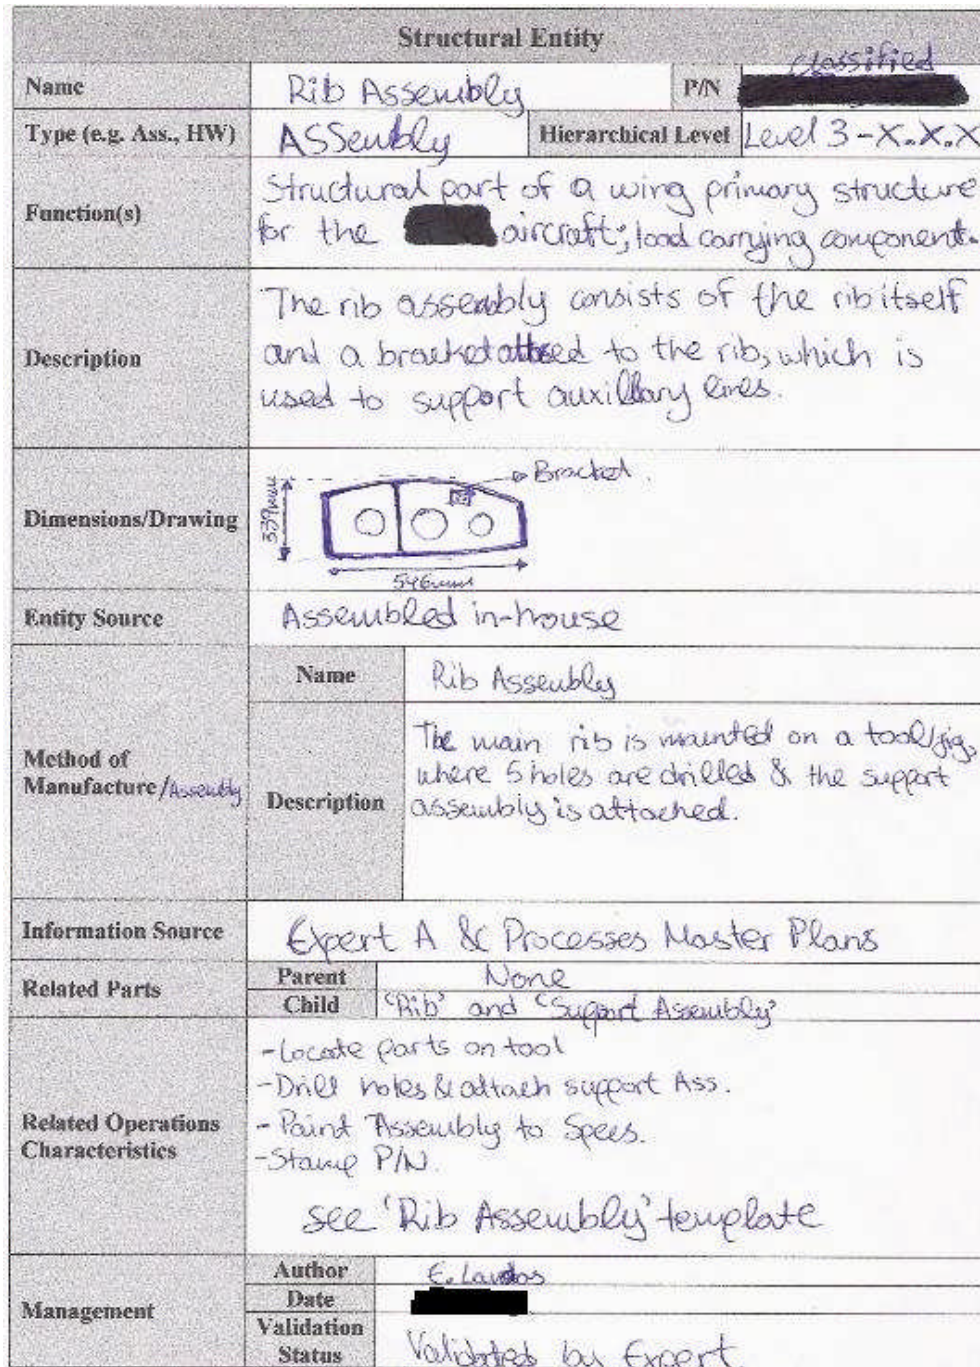 Structural Entity
Name Rib Assembly P/N classified
Type (e.g. Ass., HW) Assembly Hierarchical Level Level 3 - X.X.X
Function(s) Structural part of a wing primary structure
for the aircraft; load carrying component.
Description The rib assembly consists of the rib itself
and a bracket to the rib, which is
used to support auxillary lines.
Dimensions/Drawing 339mm Bracket.
546mm
Entity Source Assembled in-house
Method of Manufacture/Assembly
Name Rib Assembly
Description The main rib is mounted on a tool/jig,
where 5 holes are drilled & the support
assembly is attached.
Information Source Expert A & Processes Master Plans
Related Parts Parent None
Child 'Rib' and 'Support Assembly'
Related Operations Characteristics
-Locate parts on tool
-Drill holes & attach support Ass.
-Paint Assembly to Specs.
-Stamp P/N.
see 'Rib Assembly' template
Management Author E.
Date
Validation Status Validated by Expert